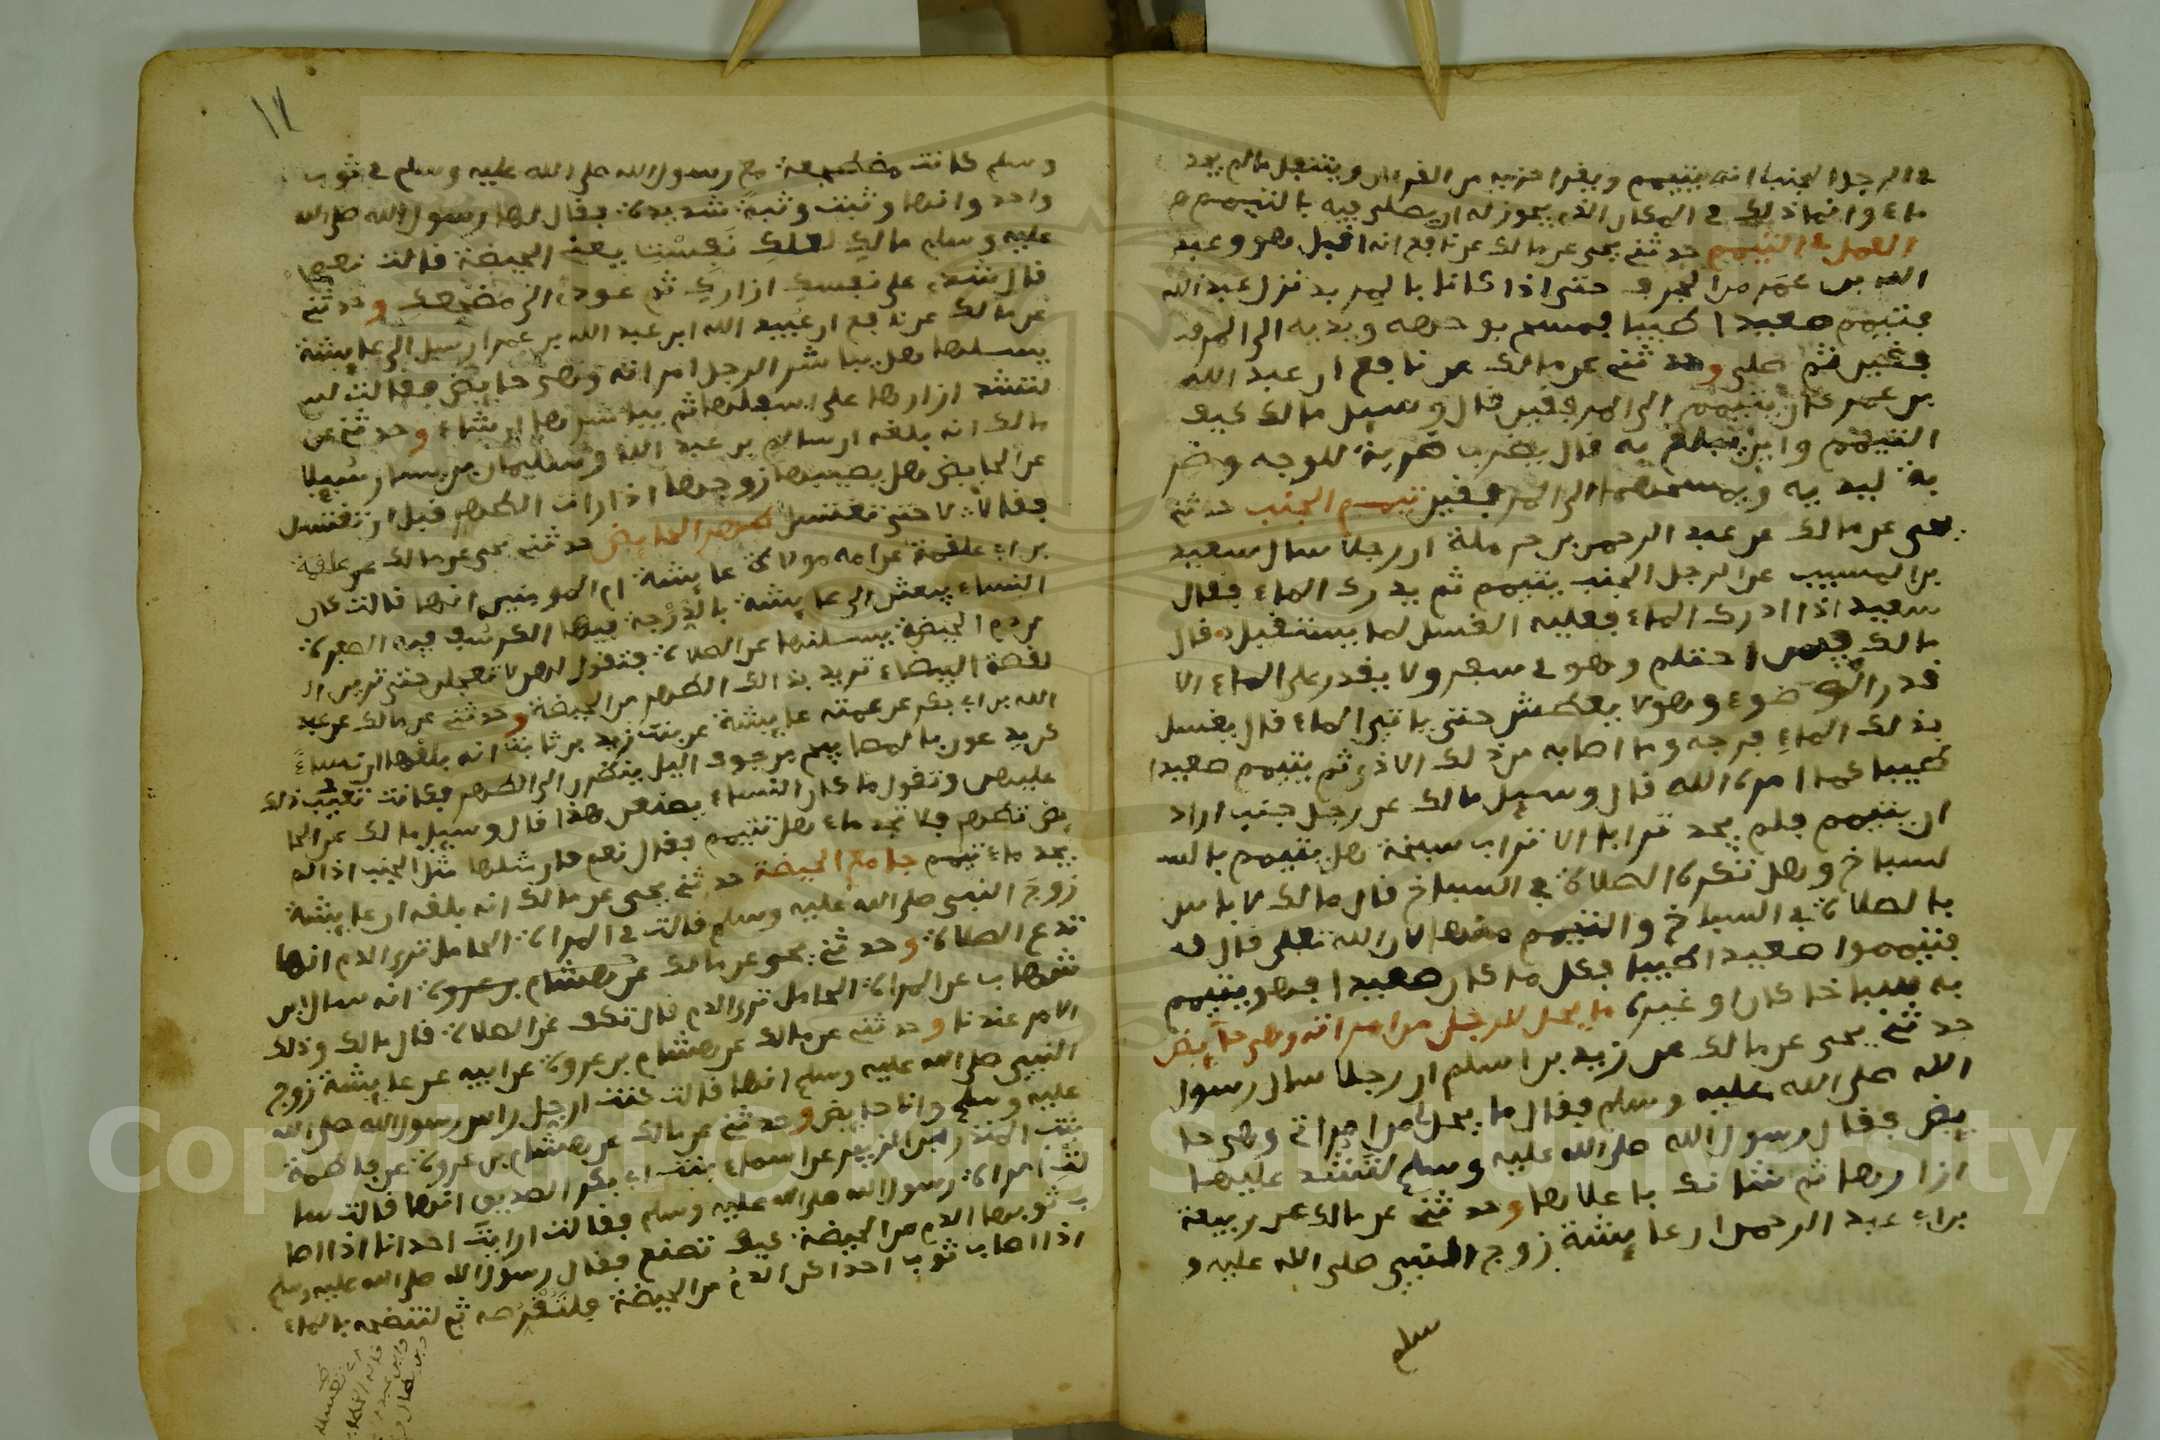 في الرجل الجنب انه يتيمم ويقرا حزبه من القران ويتنفل ما لم يجد
ماء وانما ذلك في المكان الذي يجوز له ان يصلي فيه بالتيمم
العمل في التيمم حدثني يحيى عن مالك عن نافع انه اقبل هو وعبد
الله بن عمر من الجرف حتى اذا كانا بالمربد نزل عبد الله
فتيمم صعيدا طيبا فمسح بوجهه ويديه الى المرف
فقين ثم صلى وحدثني عن مالك عن نافع ان عبد الله
بن عمر كان يتيمم الى المرفقين قال وسيل مالك كيف
التيمم واين يبلغ به قال يضرب ضربة للوجه وضر
بة ليديه ويمسحهما الى المرفقين تيمم الجنب حدثني
يحيى عن مالك عن عبد الرحمن بن حرملة ان رجلا سال سعيد
بن المسيب عن الرجل الجنب يتيمم ثم يدرك الماء فقال
سعيد اذا ادرك الماء فعليه الغسل لما يستقبل قال
مالك فيمن احتلم وهو في سفر ولا يقدر على الماء الا
قدر الوضوء وهو لا يعطش حتى ياتي الماء قال يغسل
بذلك الماء فرجه وما اصابه من ذلك الاذى ثم يتيمم صعيدا
طيبا كما امره الله قال وسيل مالك عن رجل جنب اراد
ان يتيمم فلم يجد ترابا الا تراب سبخة هل يتيمم بالسـ
لسباخ وهل تكره الصلاة في السباخ قال مالك لا باس
بالصلاة في السباخ والتيمم منها لان الله تعلى قال فـ
فتيمموا صعيدا طيبا فكل ما كان صعيدا فهو يتيمم
به سباخا كان او غيره ما يحل للرجل من امراته وهي حايض
حدثني يحيى عن مالك عن زيد بن اسلم ان رجلا سال رسول
الله صلى الله عليه وسلم فقال ما يحل لي من امراتي وهي حا
يض فقال رسول الله صلى الله عليه وسلم لتشد عليها
ازارها ثم شانك باعلاها وحدثني عن مالك عن ربيعة
بن ابي عبد الرحمن ان عايشة زوج النبي صلى الله عليه و
سلم
١٢
وسلم كانت مضطجعة مع رسول الله صلى الله عليه وسلم في ثوب
واحد وانها وثبت وثبة شديدة فقال لها رسول الله صلى الله
عليه وسلم مالك لعلك نفست يعني الحيضة قالت نعم
قال شدي على نفسك ازارك ثم عودي الى مضجعك وحدثني
عن مالك عن نافع ان عبيد الله ابن عبد الله بن عمر ارسل الى عايشة
يسلها هل يباشر الرجل امراته وهي حايض فقالت لـ
لتشد ازارها على اسفلها ثم يباشرها ان شاء وحدثني عن
مالك انه بلغه ان سالم بن عبد الله وسليمان بن يسار سئلا
عن الحايض هل يصيبها زوجها اذا رات الطهر قبل ان تغتسل
فقالا لا حتى تغتسل طهر الحايض حدثني يحيى عن مالك عن علقمة
بن ابي علقمة عن امه مولاة عايشة ام المومنين انها قالت كان
النساء يبعثن الى عايشة بالدرجة فيها الكرسف فيه الصفرة
من دم الحيضة يسلنها عن الصلاة فتقول لهن لا تعجلن حتى ترين ا
لقصة البيضاء تريد بذالك الطهر من الحيضة وحدثني عن مالك عن عبد
الله بن ابي بكر عن عمته عايشة عن بنت زيد بن ثابت انه بلغها ان نساء
كن يدعون بالمصابيح من جوف اليل ينظرن الى الطهر فكانت تعيب ذلك
عليهن وتقول ما كان النساء يصنعن هذا قال وسيل مالك عن الحا
يض تطهر فلا تجد ماء هل تتيمم فقال نعم فان مثلها مثل الجنب اذا لم
يجد ماء تيمم جامع الحيضة حدثني يحيى عن مالك انه بلغه ان عايشة
زوج النبي صلى الله عليه وسلم قالت في المراة الحامل ترى الدم انها
تدع الصلاة وحدثني يحيى عن مالك انه سال ابن
شهاب عن المراة الحامل ترى الدم قال تكف عن الصلاة قال مالك وذلك
الامر عندنا وحدثني عن مالك عن هشام بن عروة عن ابيه عن عايشة زوج
النبي صلى الله عليه وسلم انها قالت كنت ارجل راس رسول الله صلى الله
عليه وسلم وانا حايض وحدثني عن مالك عن هشام بن عروة عن فاطمة
بنت المنذر ابن الزبير عن اسماء بنت ابي بكر الصديق انها قالت سا
لت امراة رسول الله صلى الله عليه وسلم فقالت ارايت احدانا اذا اصا
ب ثوبها الدم من الحيضة كيف تصنع فقال رسول الله صلى الله عليه وسلم
اذا اصاب ثوب احداكن الدم من الحيضة فلتقرصه ثم لتنضحه بالماء
Copyright © King Saud University